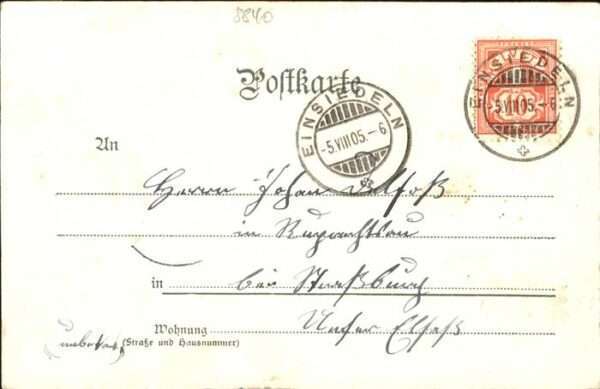 5840
Postkarte
EINSIEDELN
-5.VIII 05.-6
EINSIEDELN
-5.VIII 05.-6
10
An
Herrn Johan
in Ruprechtsau
in bei Straßburg
Wohnung Unter Elsaß
(Straße und Hausnummer)